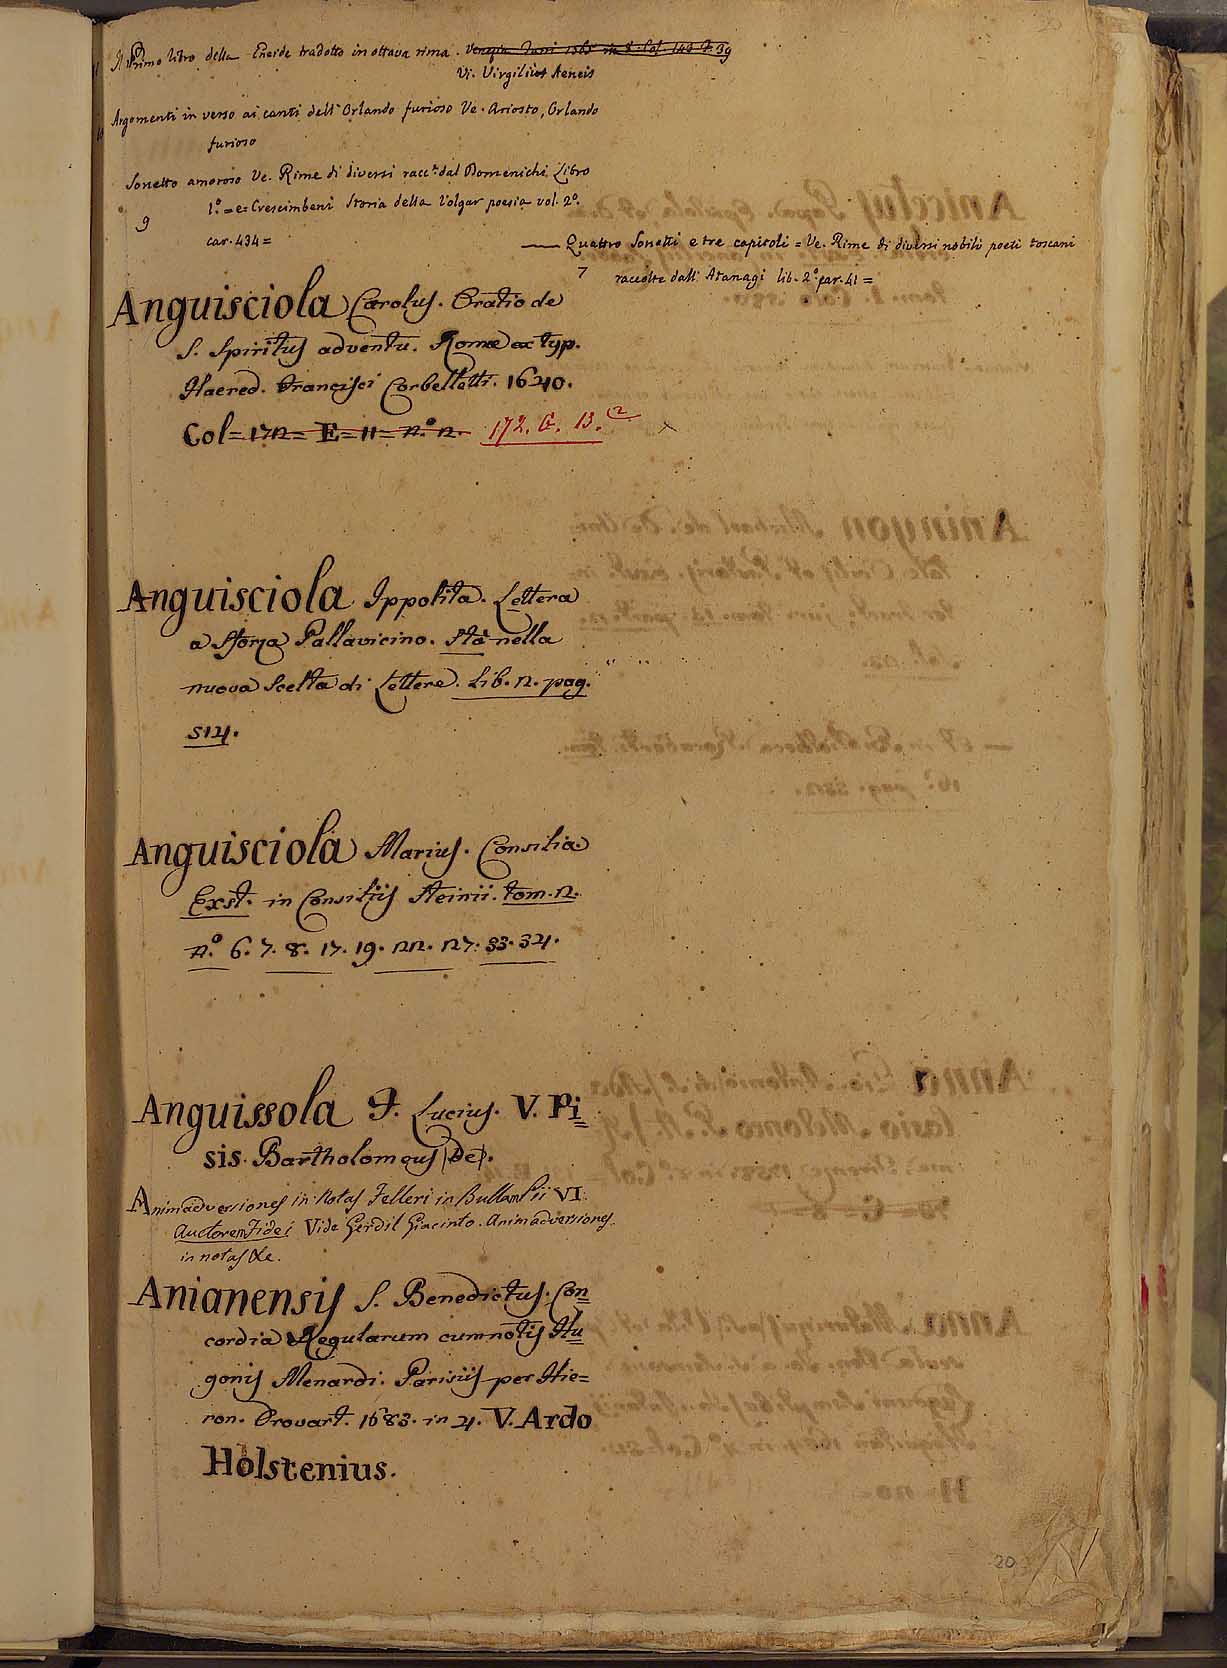 Il Primo libro della Eneide tradotto in ottava rima. Venezia 1565 in 8. Col. 148. I. 39
Vi. Virgilius Aeneis
Argomenti in verso ai canti dell'Orlando furioso Ve. Ariosto, Orlando
furioso
Sonetto amoroso Ve. Rime di diversi racc.te dal Domenichi Libro
1.º = e = Crescimbeni Storia della Volgar poesia vol. 2.º
9
car. 434 =
Quattro Sonetti e tre capitoli = Ve. Rime di diversi nobili poeti toscani
7
raccolte dall'Atanagi lib. 2.º car. 41 =
Anguisciola Carolus. Oratio de
S. Spiritus adventu. Romæ ex typ.
Haered. Francisci Corbelletti. 1640.
Col = 172 = E = 11 = n.º 2. 172. G. 13. (2
Anguisciola Ippolita. Lettera
a Sforza Pallavicino. Stà nella
nuova Scelta di Lettere. Lib. 2. pag.
514.
Anguisciola Marius. Consilia
Exst. in Consiliis Steinii. tom. 2.
n.º 6. 7. 8. 17. 19. 22. 27. 33. 34.
Anguissola F. Lucius. V. Pi
sis Bartholomeus (De).
Animadversiones in Notas Felleri in Bullam Pii VI.
Auctorem Fidei Vide Gerdil Giacinto. Animadversiones
in notas &c.
Anianensis S. Benedictus. Con
cordia Regularum cum notis Hu
gonis Menardi. Parisiis per Hie=
ron. Drouart. 1683. in 4. V. Ardo
Holstenius.
20